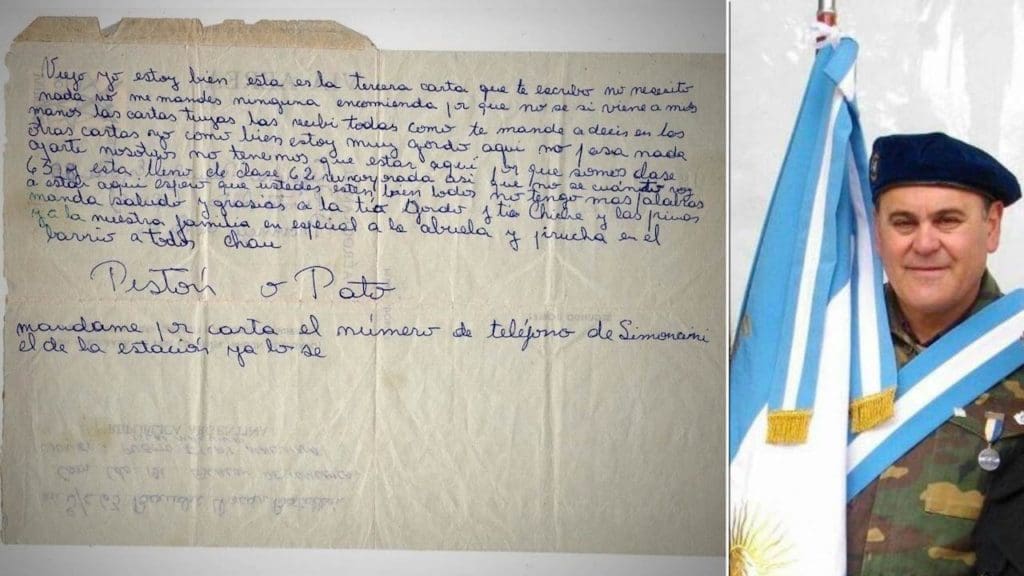 Viejo yo estoy bien esta es la tercera carta que te escribo no necesito
nada no me mandes ninguna encomienda por que no se si viene a mis
manos las cartas tuyas las recibi todas como te mande a decir en las
otras cartas yo como bien estoy muy gordo aqui no pasa nada
ojarte nosotros no tenemos que estar aqui por que somos clase
63 y esta lleno de clase 62 reincorporada asi que no se cuanto voy
a estar aqui espero que ustedes esten bien todos no tengo mas palabras
manda saludo y grasias a la tio Gordo y tia Chiche y las primas
y a la nuestra familia en especial a la abuela y pirucha en el
barrio a todos chau
Pistón o Pato
mandame por carta el número de teléfono de Simonami
el de la estación ya lo se
REPUBLICA ARGENTINA